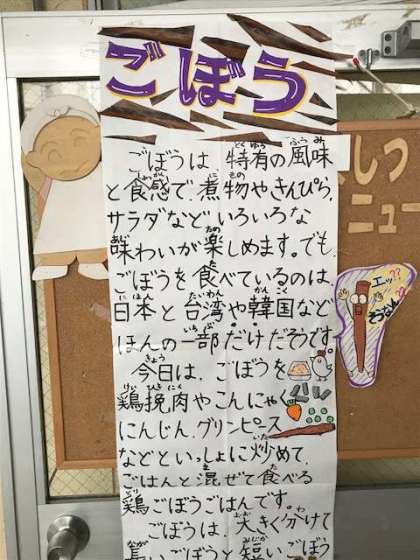 ごぼう
ごぼうは 特有の風味
と食感で、煮物やきんぴら、
サラダなどいろいろな
味わいが楽しめます。でも
ごぼうを食べているのは
日本と台湾や韓国など
ほんの一部だけだそうです
今日は、ごぼうを
鶏挽肉やこんにゃく
にんじん、グリンピース
などといっしょに炒めて
ごはんと混ぜて食べる
鶏ごぼうごはんです。
ごぼうは、大きく分けて
長いごぼうと短いごぼう
しつ
ニュー
エッ!??
そうなん